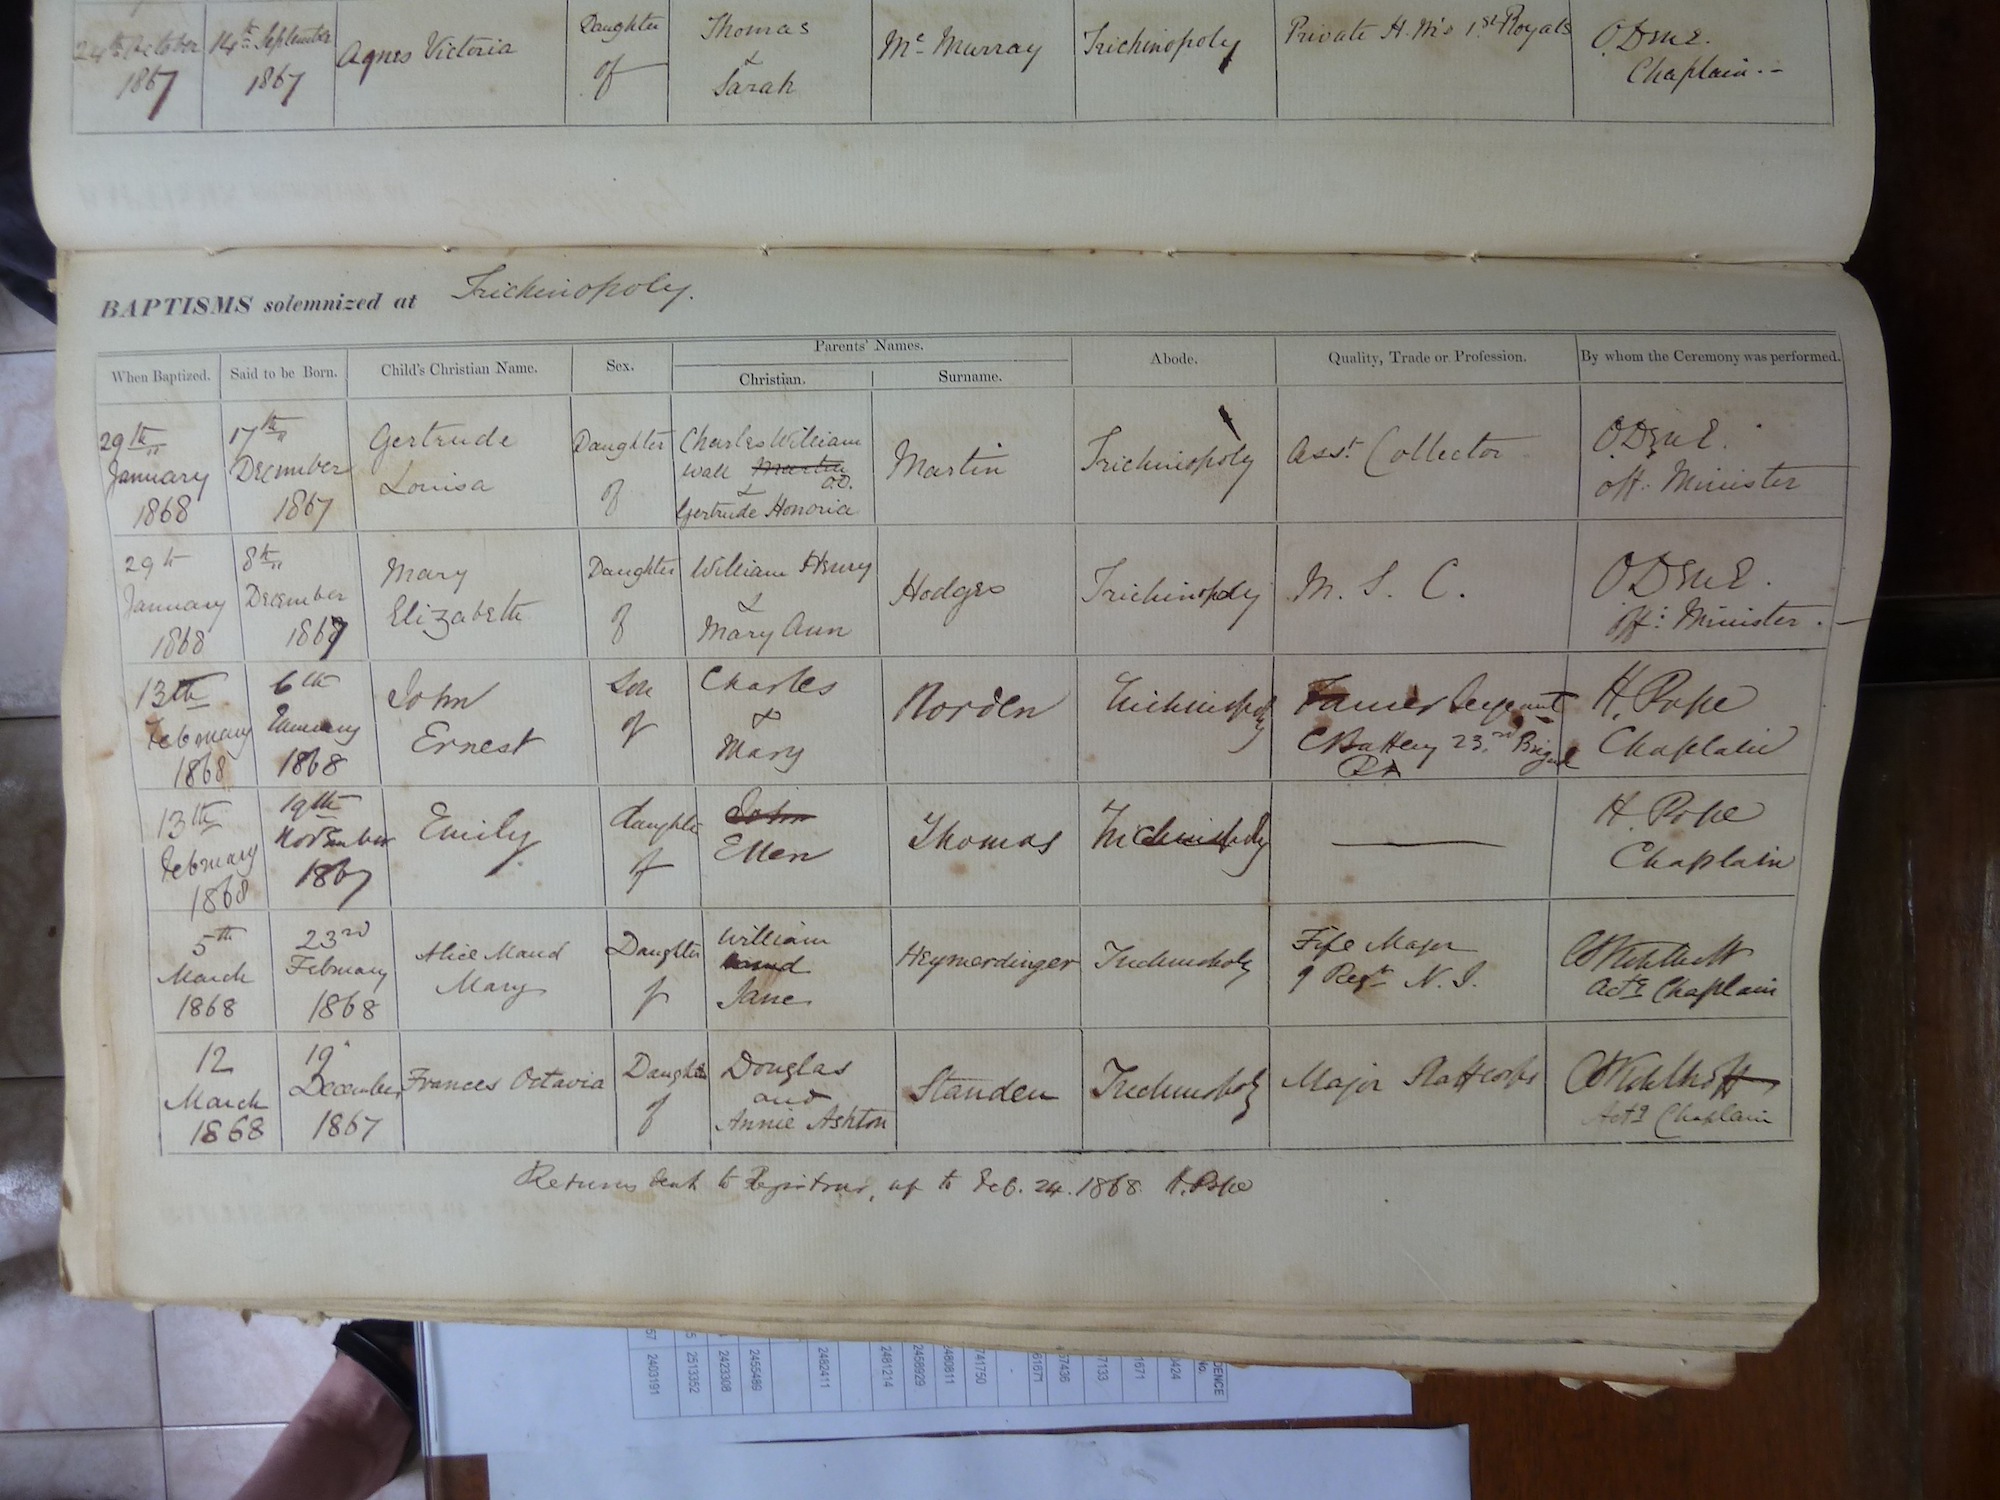 24th October 1867 14th September 1867 Agnes Victoria Daughter of Thomas & Sarah Mc Murray Trichinopoly Private H. M's 1st Royals O. Dene. Chaplain.-
BAPTISMS solemnized at Trichinopoly.
When Baptized. Said to be Born. Child's Christian Name. Sex. Parents' Names. Christian. Surname. Abode. Quality, Trade or Profession. By whom the Ceremony was performed.
29th January 1868 17th December 1867 Gertrude Louisa Daughter of Charles William Wall Martin O.D. & Gertrude Honoria Martin Trichinopoly Asst Collector O. Dene. Off. Minister
29th January 1868 8th December 1867 Mary Elizabeth Daughter of William Henry & Mary Ann Hodges Trichinopoly M. S. C. O Dene. Off: Minister.
13th February 1868 6th January 1868 John Ernest Son of Charles & Mary Norden Trichinopoly Sergeant C Battery 23rd Brigd RA H. Pope Chaplain
13th February 1868 19th November 1867 Emily daughter of John Ellen Thomas Trichinopoly — H. Pope Chaplain
5th March 1868 23rd February 1868 Alice Maud Mary Daughter of William and Jane Heymerdinger Trichinopoly Fife Major 9 Regt N. I. Actg Chaplain
12 March 1868 19 December 1867 Frances Octavia Daughter of Douglas and Annie Ashton Standen Trichinopoly Major Staff Corps Kohlhoff Actg Chaplain
Returns sent to Registrar, up to Feb. 24. 1868 H. Pope
2403191
2513352
2423308
2455489
2482411
2481214
2458929
2480811
741750
61671
67436
7133
1671
0424
DENCE No.